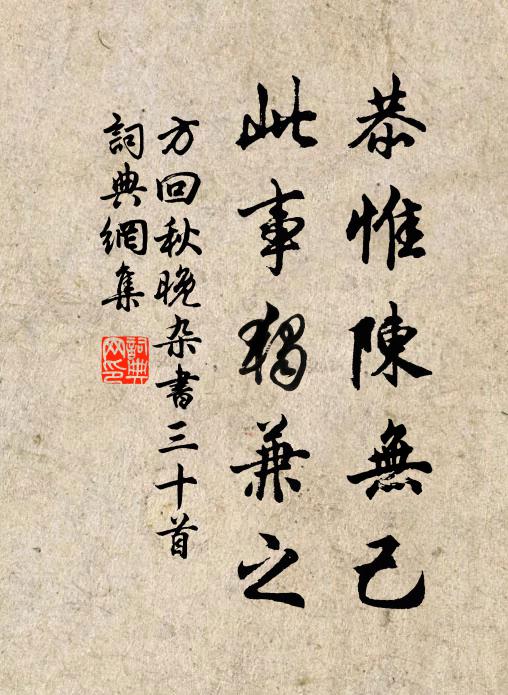 恭惟陳無己
此事獨兼之
方回秋晚杂書三十首
詞典網集
詞典网印